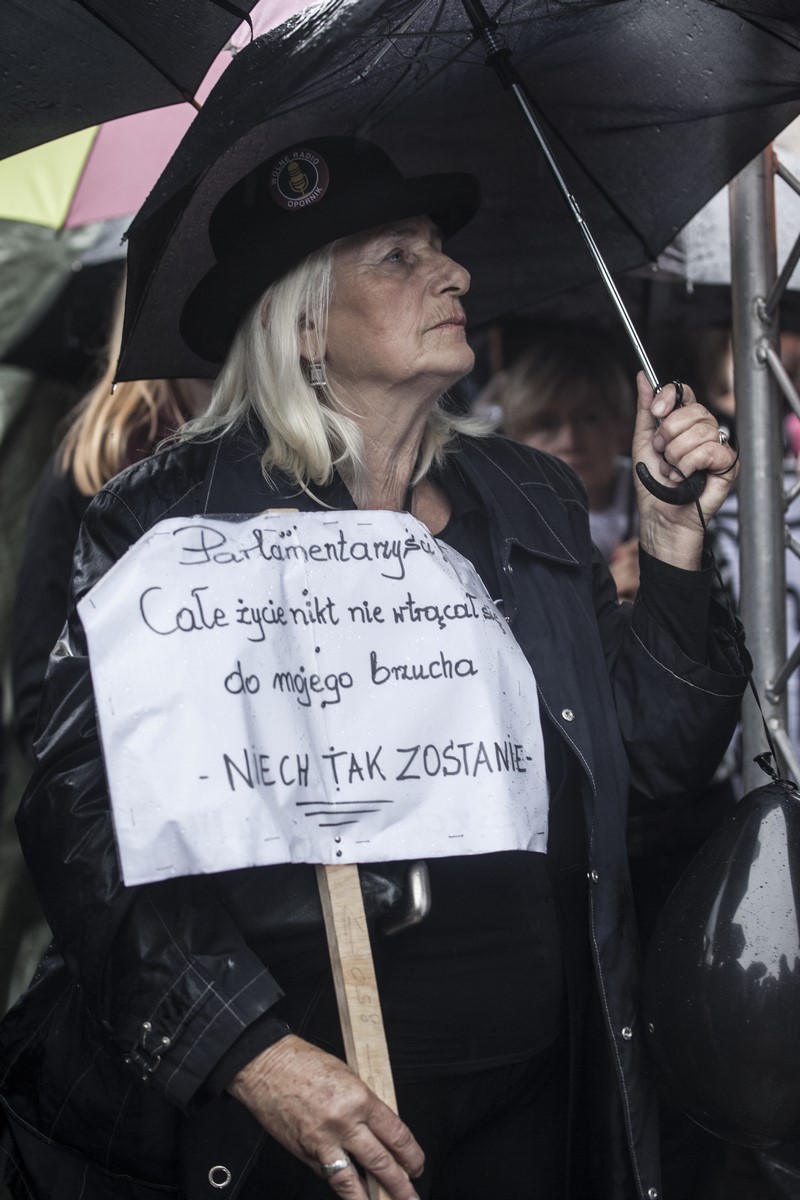 WOLNE RADIO
OPORNIK
Parlamentarzyści
Całe życie nikt nie wtrącał się
do mojego brzucha
- NIECH TAK ZOSTANIE -